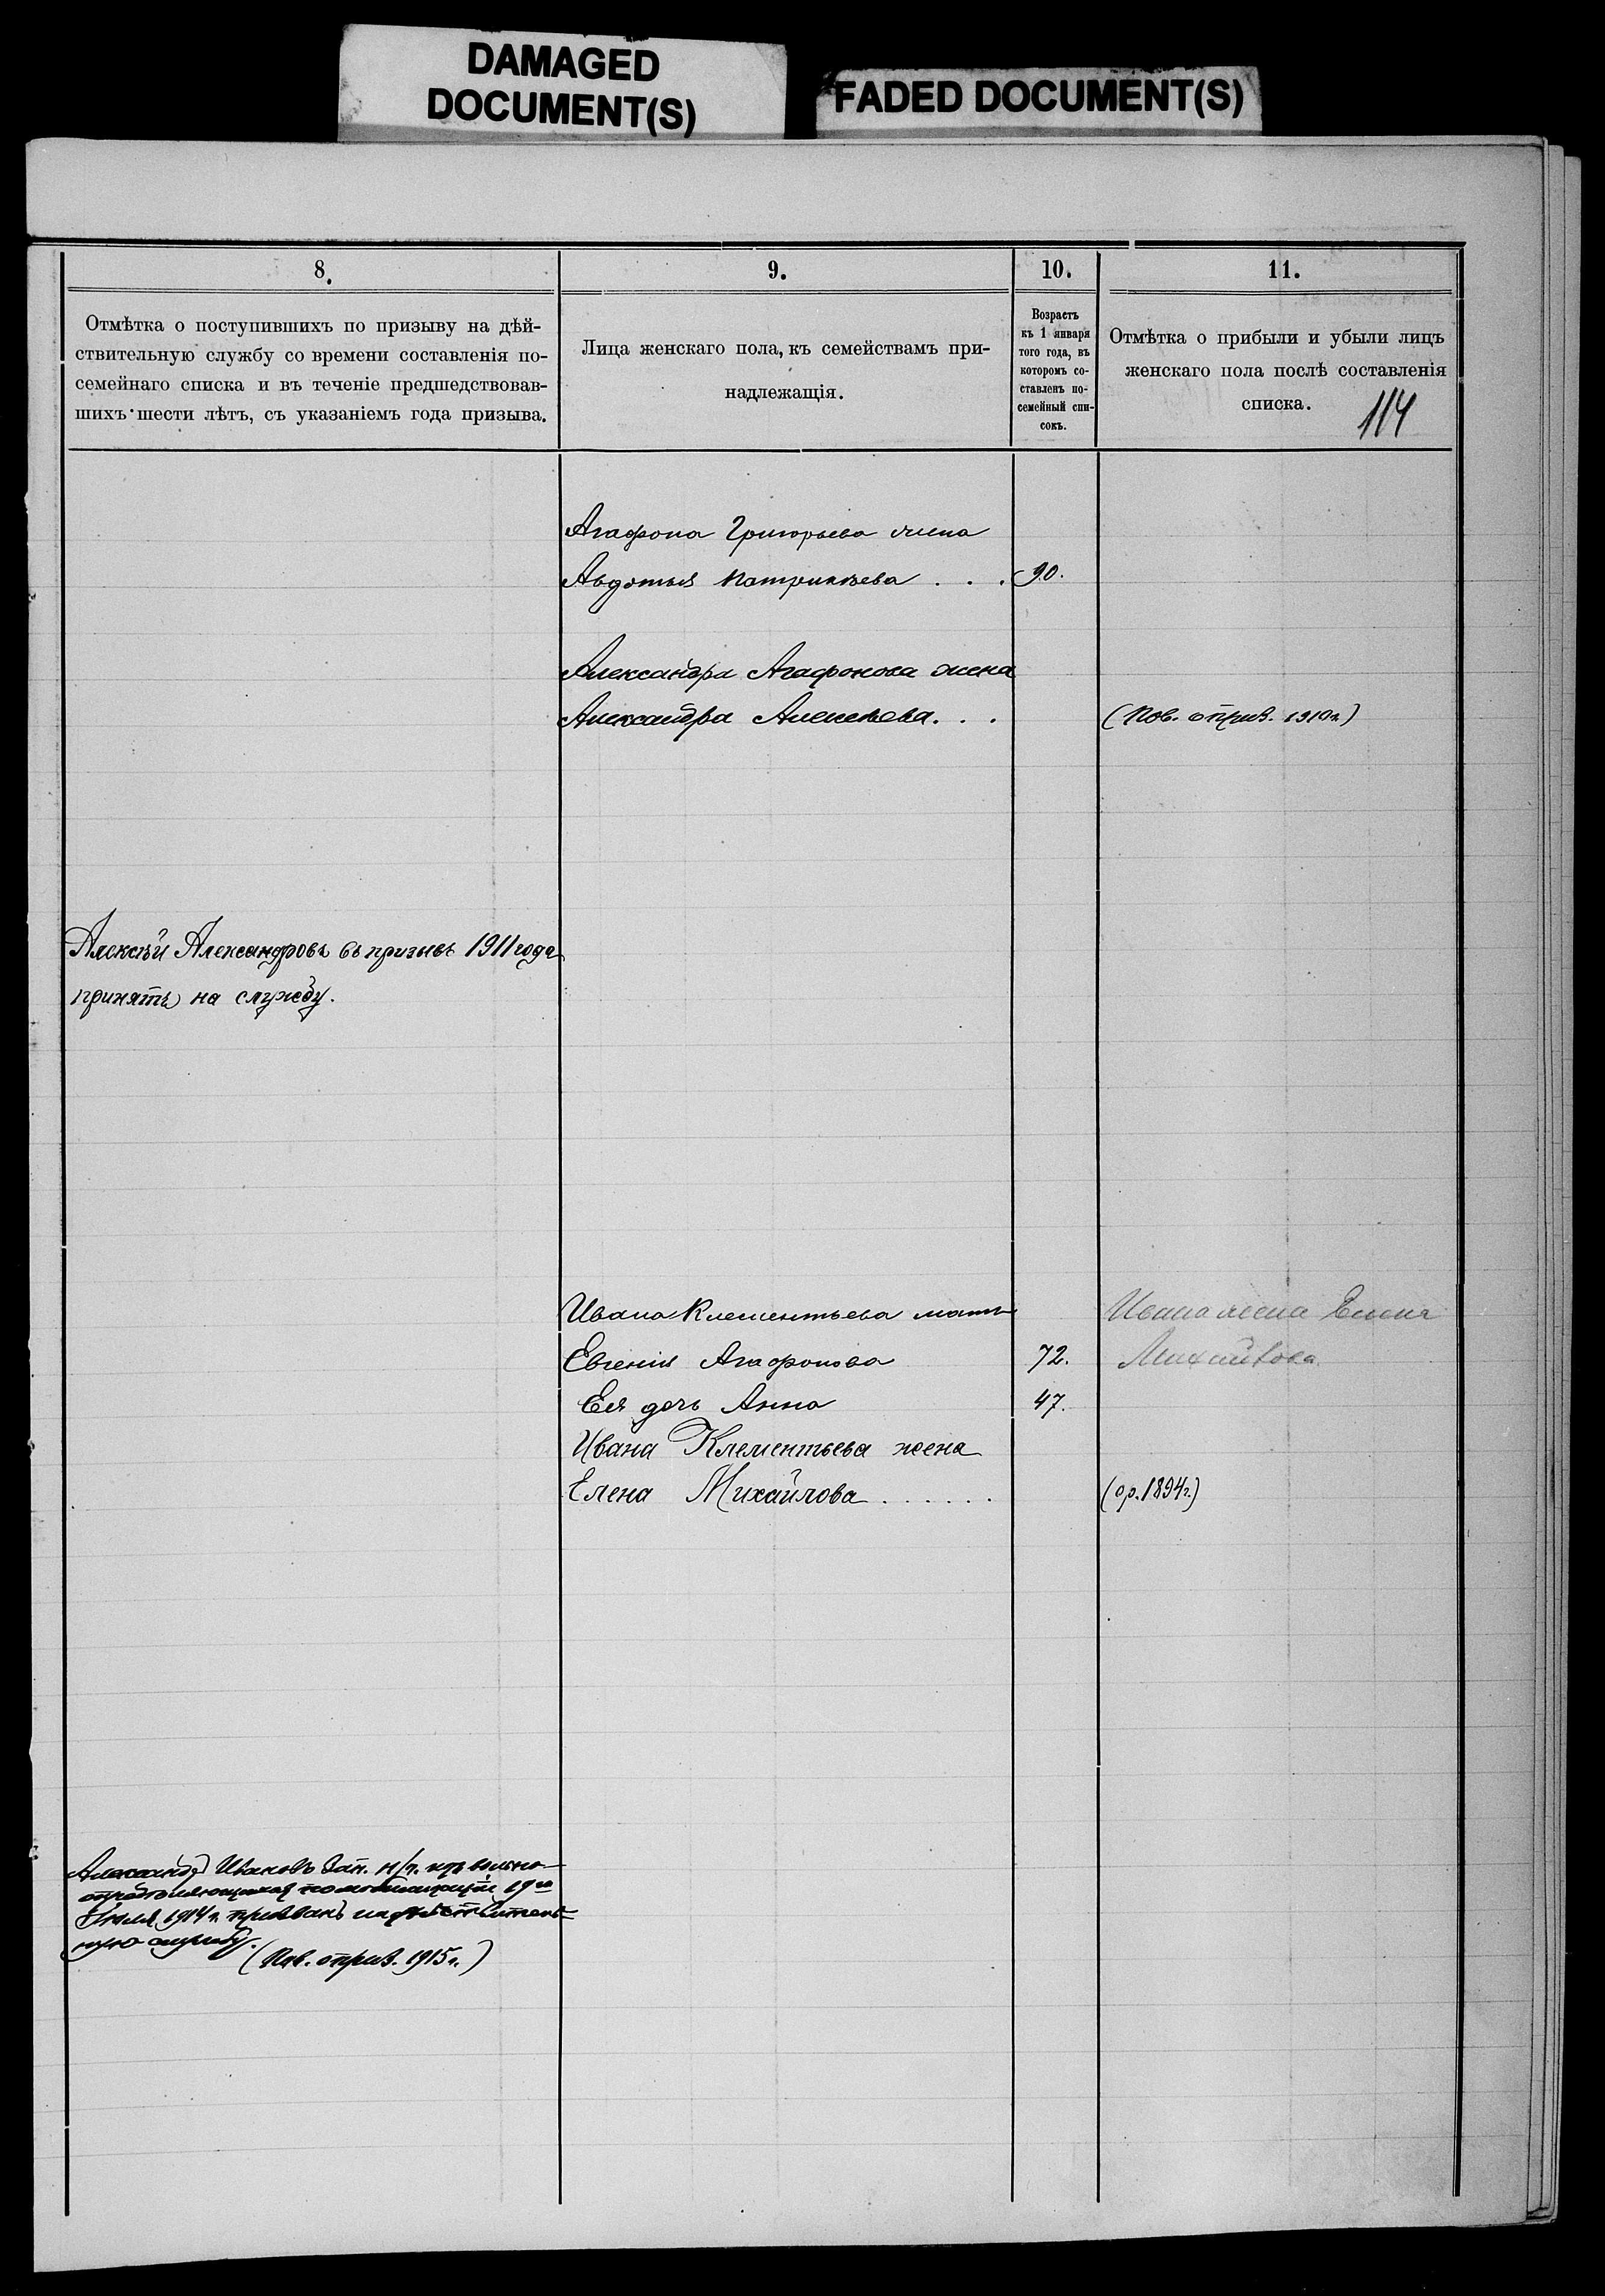 DAMAGED
DOCUMENT(S)
FADED DOCUMENT(S)
8.
Отмѣтка о поступившихъ по призыву на дѣй-
ствительную службу со времени составленія по-
семейнаго списка и въ теченіе предшедствовав-
шихъ шести лѣтъ, съ указаніемъ года призыва.
9.
Лица женскаго пола, къ семействамъ при-
надлежащія.
10.
Возрастъ
къ 1 января
того года, въ
которомъ со-
ставленъ по-
семейный спи-
сокъ.
11.
Отмѣтка о прибыли и убыли лицъ
женскаго пола послѣ составленія
списка.
114
Агафона Григорьева жена
Авдотья Патрикѣева . . . 90.
Александра Агафонова жена
Александра Алексѣева. . . (Пов. о приз. 1910 г.)
Алексѣй Александровъ въ призывъ 1911 года
принятъ на службу.
Ивана Клементьева мать
Ивана жена Елена
Евгенія Агафонова 72.
Михайлова
Ея дочь Анна 47.
Ивана Клементьева жена
Елена Михайлова . . . . . . (о р. 1894 г.)
Александръ Ивановъ Зап. н/ч. изъ вольно-
опредѣляющихся по мобилизаціи 19го
Іюля 1914 г. призванъ на дѣйствитель-
ную службу.
(Пов. о приз. 1915 г.)